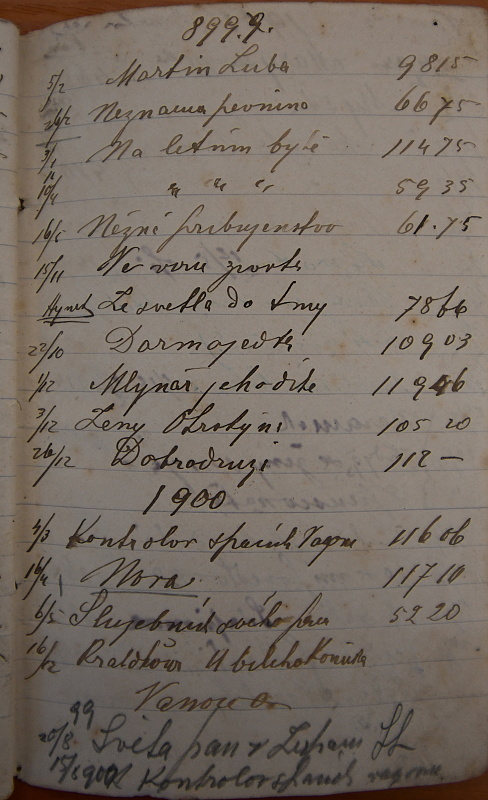 899.
5/2 Martin Luba 98 15
26/2 Neznama pevnina 66 75
3/ Na letním bytě 114 75
19/4 „ „ „ 59 35
16/5 Něžné příbuzenstvo 61.75
15/11 Ve víru
Hynek Ze světla do tmy 78 66
22/10 Darmojedka 109 03
1/12 Mlynář jeho dítě 119 46
3/12 Ženy Otrokyni 105 20
26/12 Dobrodruzi 112 —
1900
4/3 Kontrolor spacích Vagonu 116 06
16/4 Nora 117 10
6/5 Služebník svého pána 52 20
16/12 Pralátkova U bílého Koníčka
Vanoce
99
20/8 Světa pan v
15/ 1900 Kontrolor spacích vagonu